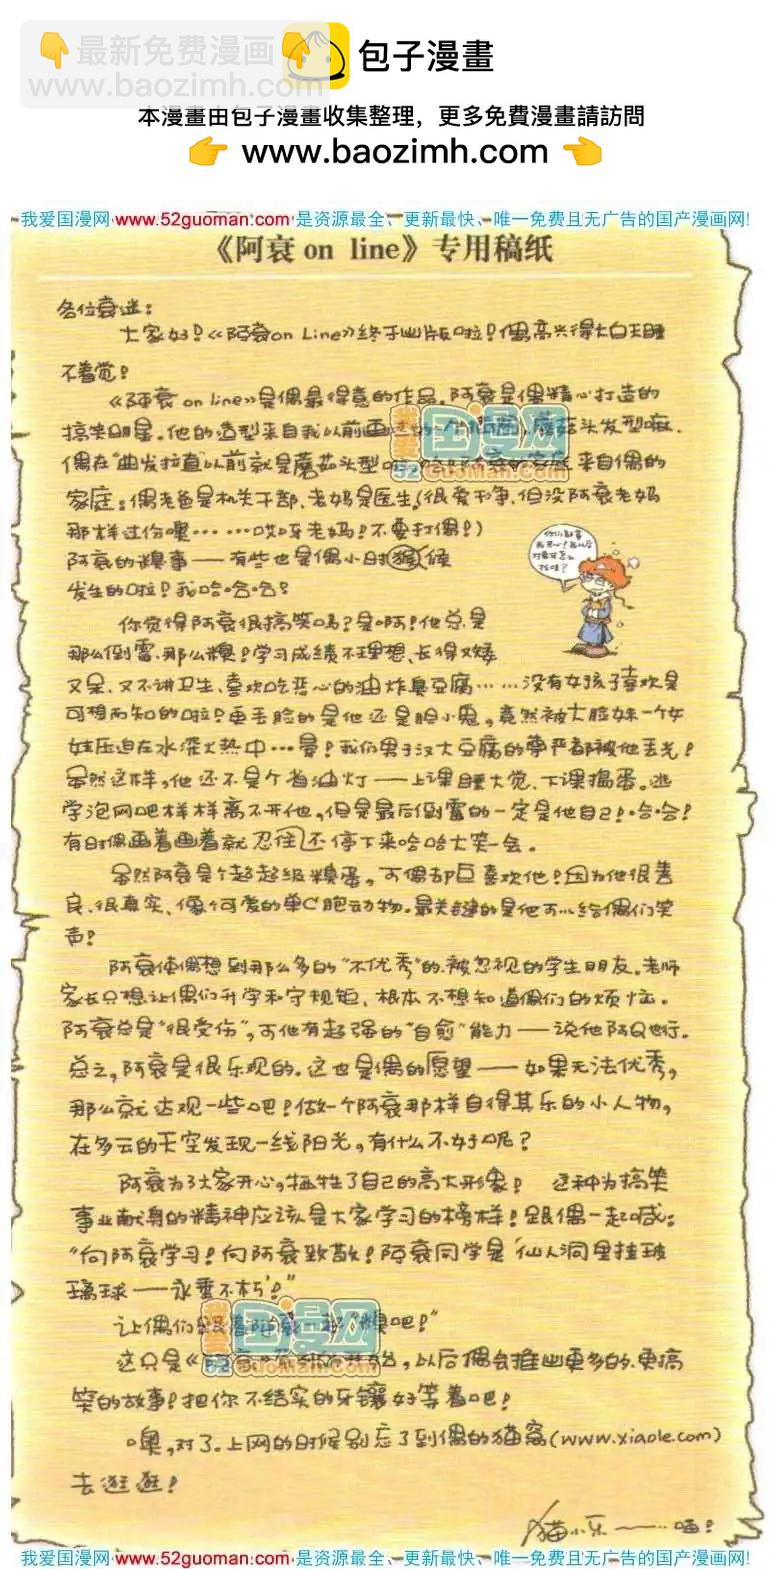 👇最新免费漫画👇
www.baozimh.com
包子漫畫
本漫畫由包子漫畫收集整理，更多免費漫畫請訪問
👉 www.baozimh.com 👈
我爱国漫网 www.52guoman.com 是资源最全、更新最快、唯一免费且无广告的国产漫画网!
《阿衰 on line》专用稿纸
各位衰迷：
大家好！《阿衰on Line》终于出版啦！偶高兴得大白天睡
不着觉！
《阿衰 on line》是偶最得意的作品，阿衰是偶精心打造的
搞笑明星。他的造型来自我以前画 蘑菇头发型嘛，
偶在"曲发拉直"以前就是蘑菇头型 来自偶的
家庭：偶老爸是机关干部，老妈是医生，(很爱干净，但没阿衰老妈
那样过份噢……哎呀老妈！不要打偶！)
阿衰的糗事——有些也是偶小时候
发生的啦！我哈哈哈！
你觉得阿衰很搞笑吗？是啊！他总是
那么倒霉、那么糗！学习成绩不理想、长得又矮
又呆、又不讲卫生、喜欢吃恶心的油炸臭豆腐……没有女孩子喜欢是
可想而知的啦！更丢脸的是他还是胆小鬼，竟然被大脸妹一个女
娃压迫在水深火热中…晕！我们男子汉大豆腐的尊严都被他丢光！
虽然这样，他还不是个省油灯——上课睡大觉、下课捣蛋。逃
学泡网吧样样离不开他，但是最后倒霉的一定是他自己！哈哈！
有时偶画着画着就忍住不停下来哈哈大笑一会。
虽然阿衰是个超超级糗蛋，可偶却巨喜欢他！因为他很善
良、很真实、像个可爱的单C胞动物。最关键的是他可以给偶们笑
声！
阿衰使偶想到那么多的"不优秀"的、被忽视的学生朋友。老师
家长只想让偶们升学和守规矩，根本不想知道偶们的烦恼。
阿衰总是"很受伤"，可他有超强的"自愈"能力——说他阿Q也行。
总之，阿衰是很乐观的。这也是偶的愿望——如果无法优秀，
那么就达观一些吧！做一个阿衰那样自得其乐的小人物，
在多云的天空发现一线阳光，有什么不好呢？
阿衰为了大家开心，牺牲了自己的高大形象！ 这种为搞笑
事业献身的精神应该是大家学习的榜样！跟偶一起喊：
"向阿衰学习！向阿衰致敬！阿衰同学是'仙人洞里挂玻
璃球——永垂不朽'！"
让偶们跟着阿衰一起"糗吧！"
这只是《阿衰》 开始，以后偶会推出更多的、更搞
笑的故事！把你不结实的牙镶好等着吧！
噢，对了。上网的时候别忘了到偶的猫窝(www.xiaole.com)
去逛逛！
猫小乐～～…喵！
我爱国漫网 www.52guoman.com 是资源最全、更新最快、唯一免费且无广告的国产漫画网!